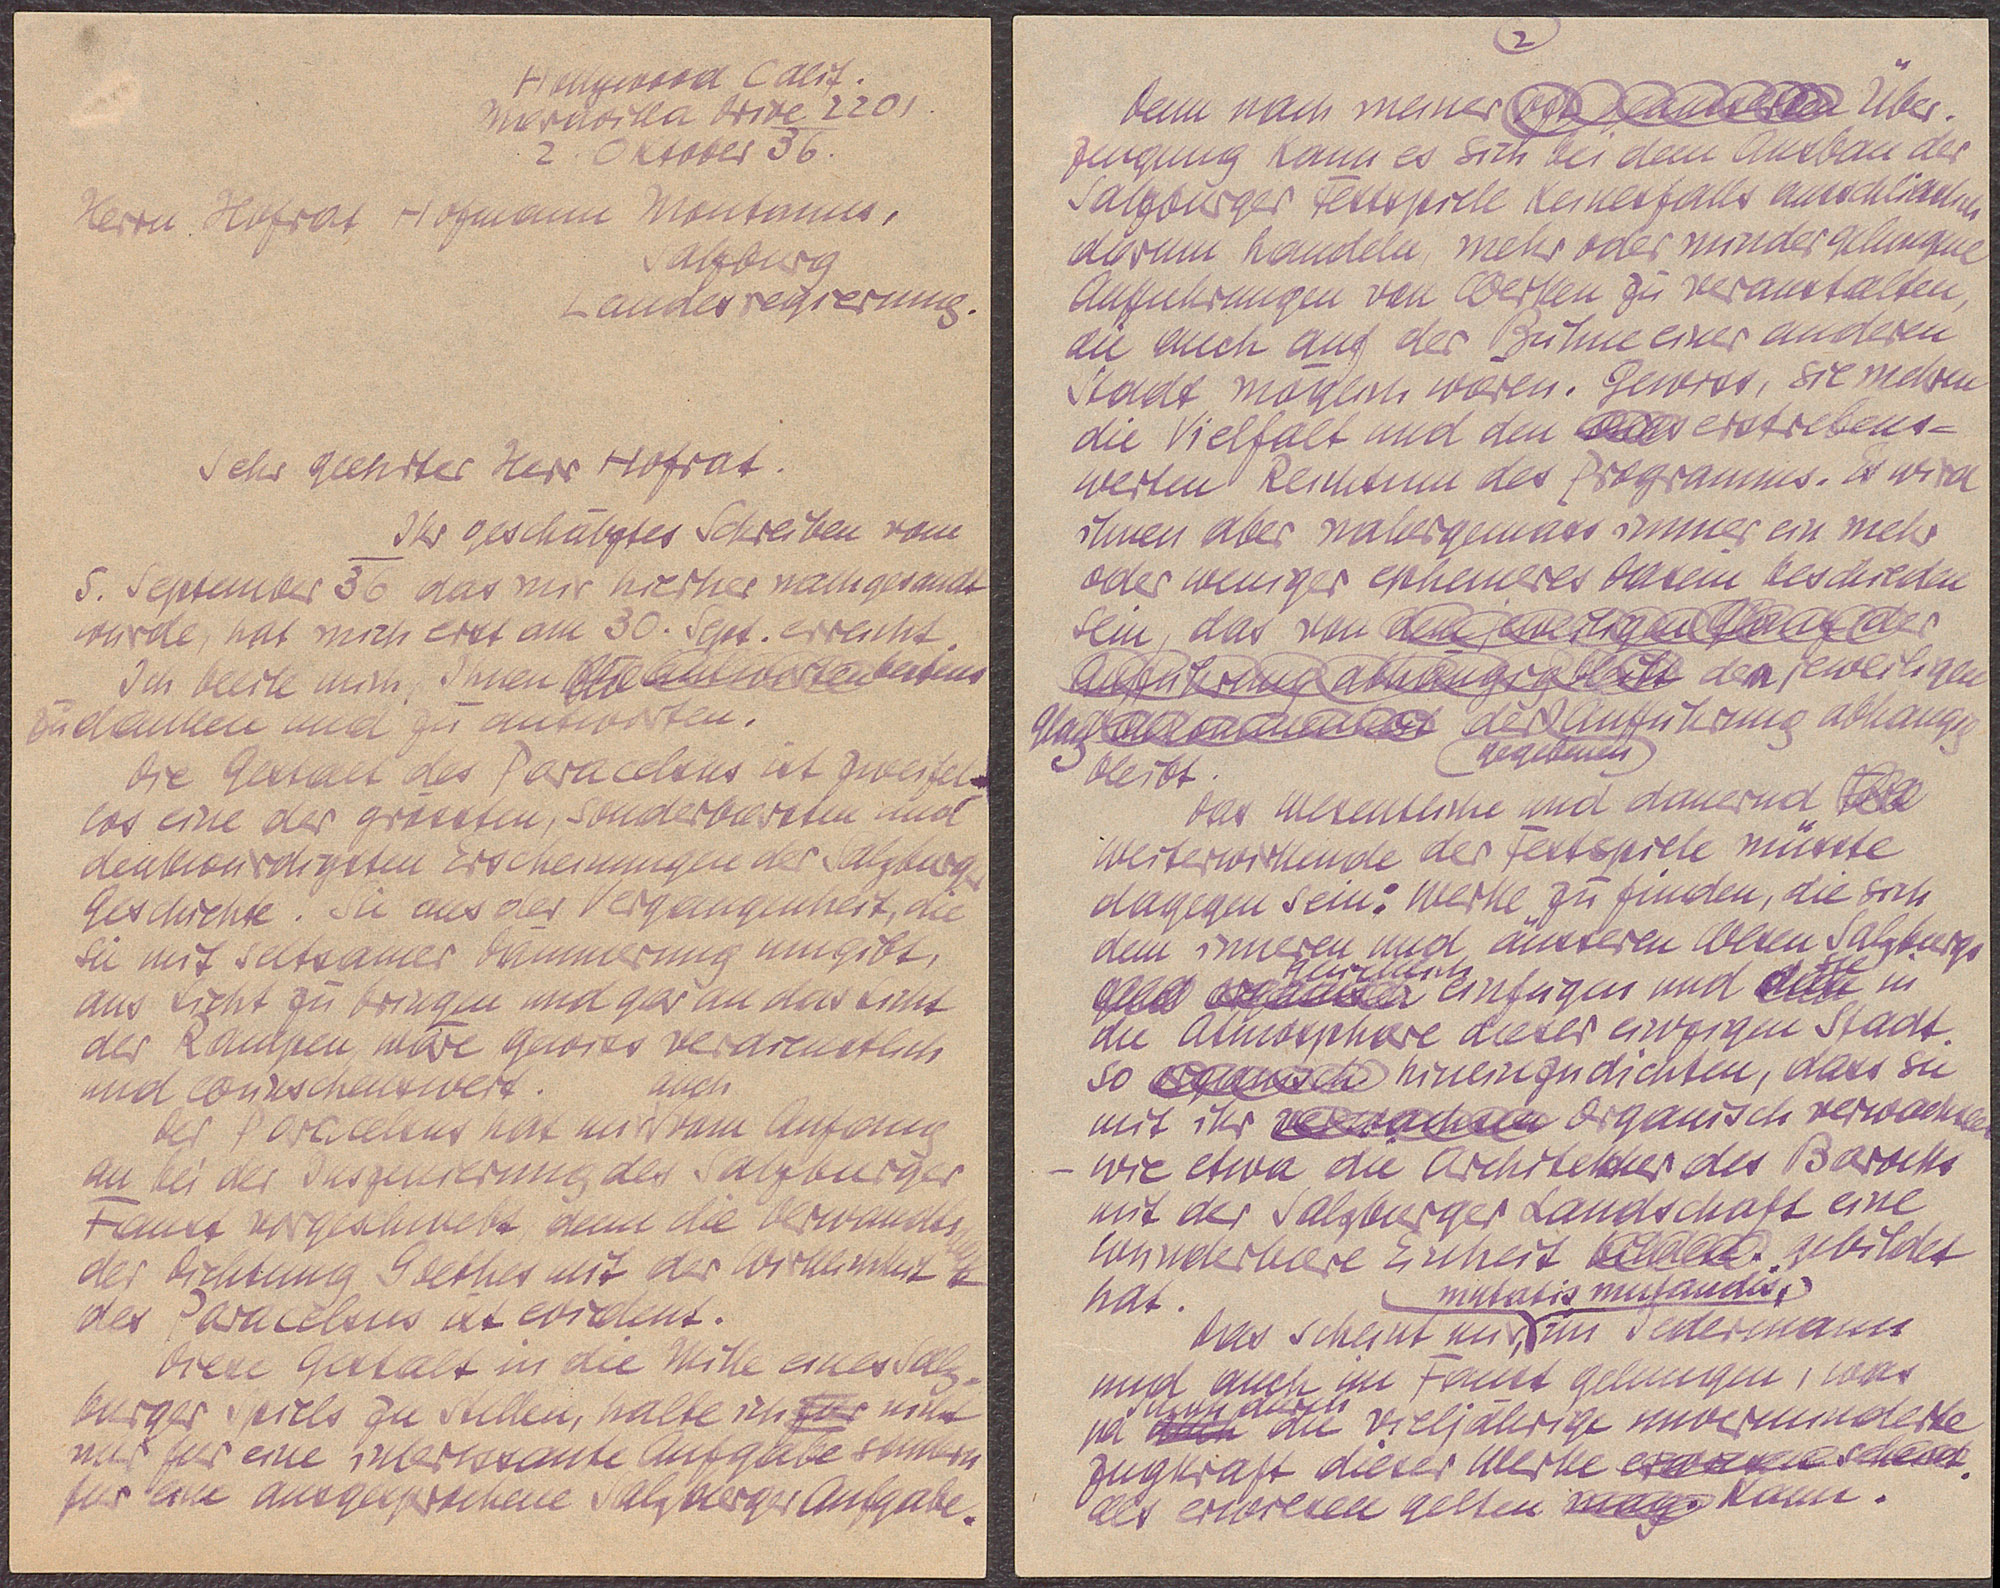 Hollywood Calif.
Maravilla Drive 2201
2. Oktober 36.
Herrn Hofrat Hofmann Montanus,
Salzburg
Landesregierung.
Sehr geehrter Herr Hofrat.
Ihr geschätztes Schreiben vom
5. September 36 das mir hierher nachgesandt
wurde, hat mich erst am 30. Sept. erreicht.
Ich beeile mich, Ihnen bestens
zu danken und zu antworten.
Die Gestalt des Paracelsus ist zweifel-
los eine der grössten, sonderbarsten und
denkwürdigsten Erscheinungen der Salzburger
Geschichte. Sie aus der Vergangenheit, die
sie mit seltsamer Dämmerung umgibt,
ans Licht zu bringen und gar an das Licht
der Rampen, wäre gewiss verdienstlich
und wünschenswert.
Der Paracelsus hat mir auch vom Anfang
an bei der Inszenierung des Salzburger
Faust vorgeschwebt, denn die Verwandtschaft
der Dichtung Goethes mit der Wirklichkeit
des Paracelsus ist evident.
Diese Gestalt in die Mitte eines Salz-
burger Spiels zu stellen, halte ich nicht
nur für eine interessante Aufgabe sondern
für eine ausgesprochene Salzburger Aufgabe.
2
Denn nach meiner Über-
zeugung kann es sich bei dem Ausbau der
Salzburger Festspiele keinesfalls ausschliesslich
darum handeln, mehr oder minder gelungene
Aufführungen von Werken zu veranstalten,
die auch auf der Bühne einer anderen
Stadt möglich wären. Gewiss, sie mehren
die Vielfalt und den erstrebens-
werten Reichtum des Programms. Es wird
ihnen aber naturgemäss immer ein mehr
oder weniger ephemeres Dasein beschieden
sein, das von dem jeweiligen Glanz der
Aufführung abhängig bleibt dem jeweiligen
Glanz der Aufführung abhängig
gegebenen
bleibt.
Das Wesentliche und dauernd
Weiterwirkende der Festspiele müsste
dagegen sein: Werke zu finden, die sich
dem inneren und äusseren Wesen Salzburgs
einfügen und sie in
die Atmosphäre dieser einzigen Stadt
so organisch hineinzudichten, dass sie
mit ihr verwachsen organisch verwachsen
– wie etwa die Architektur des Barocks
mit der Salzburger Landschaft eine
wunderbare Einheit bilden. gebildet
hat.
mutatis mutandis,
Das scheint mir, im Jedermann
und auch im Faust gelungen, was
ja schon durch die vieljährige unverminderte
Zugkraft dieser Werke erwiesen scheint.
als erwiesen gelten mag. kann.